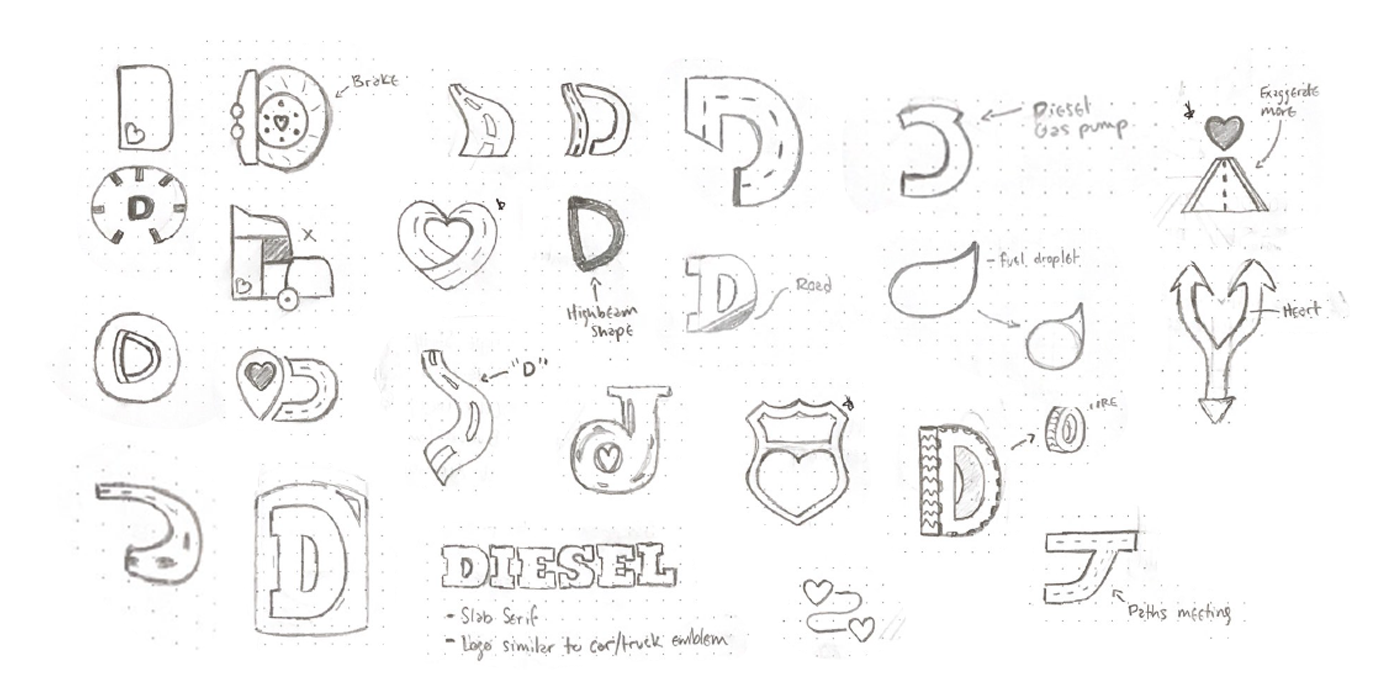 Brake
Diesel
Gas pump
Exaggerate
more
D
x
D
Highbeam
shape
D
Road
- fuel droplet
Heart
D
"D"
D
DIESEL
- Slab Serif
- Logo similar to car/truck emblem
D
TIRE
Paths meeting